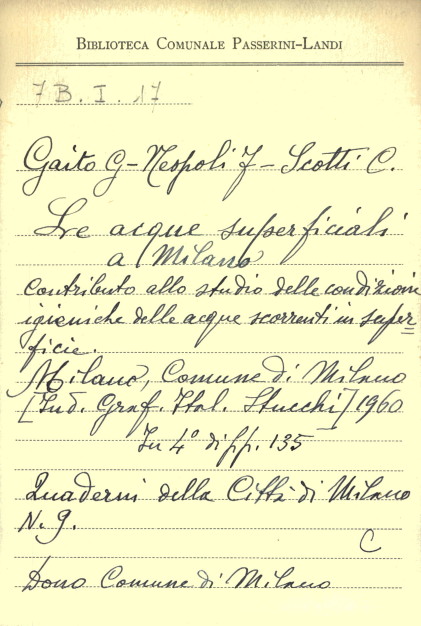 BIBLIOTECA COMUNALE PASSERINI-LANDI
7 B. I. 17
Gaito G - Nespoli F - Scotti C.
Le acque superficiali
a Milano
Contributo allo studio delle condizioni
igieniche delle acque scorrenti in super
ficie.
Milano, Comune di Milano
[Ind. Graf. Ital. Stucchi] 1960
In 4° di pp. 135
Quaderni della Città di Milano
N. 9.
C
Dono Comune di Milano